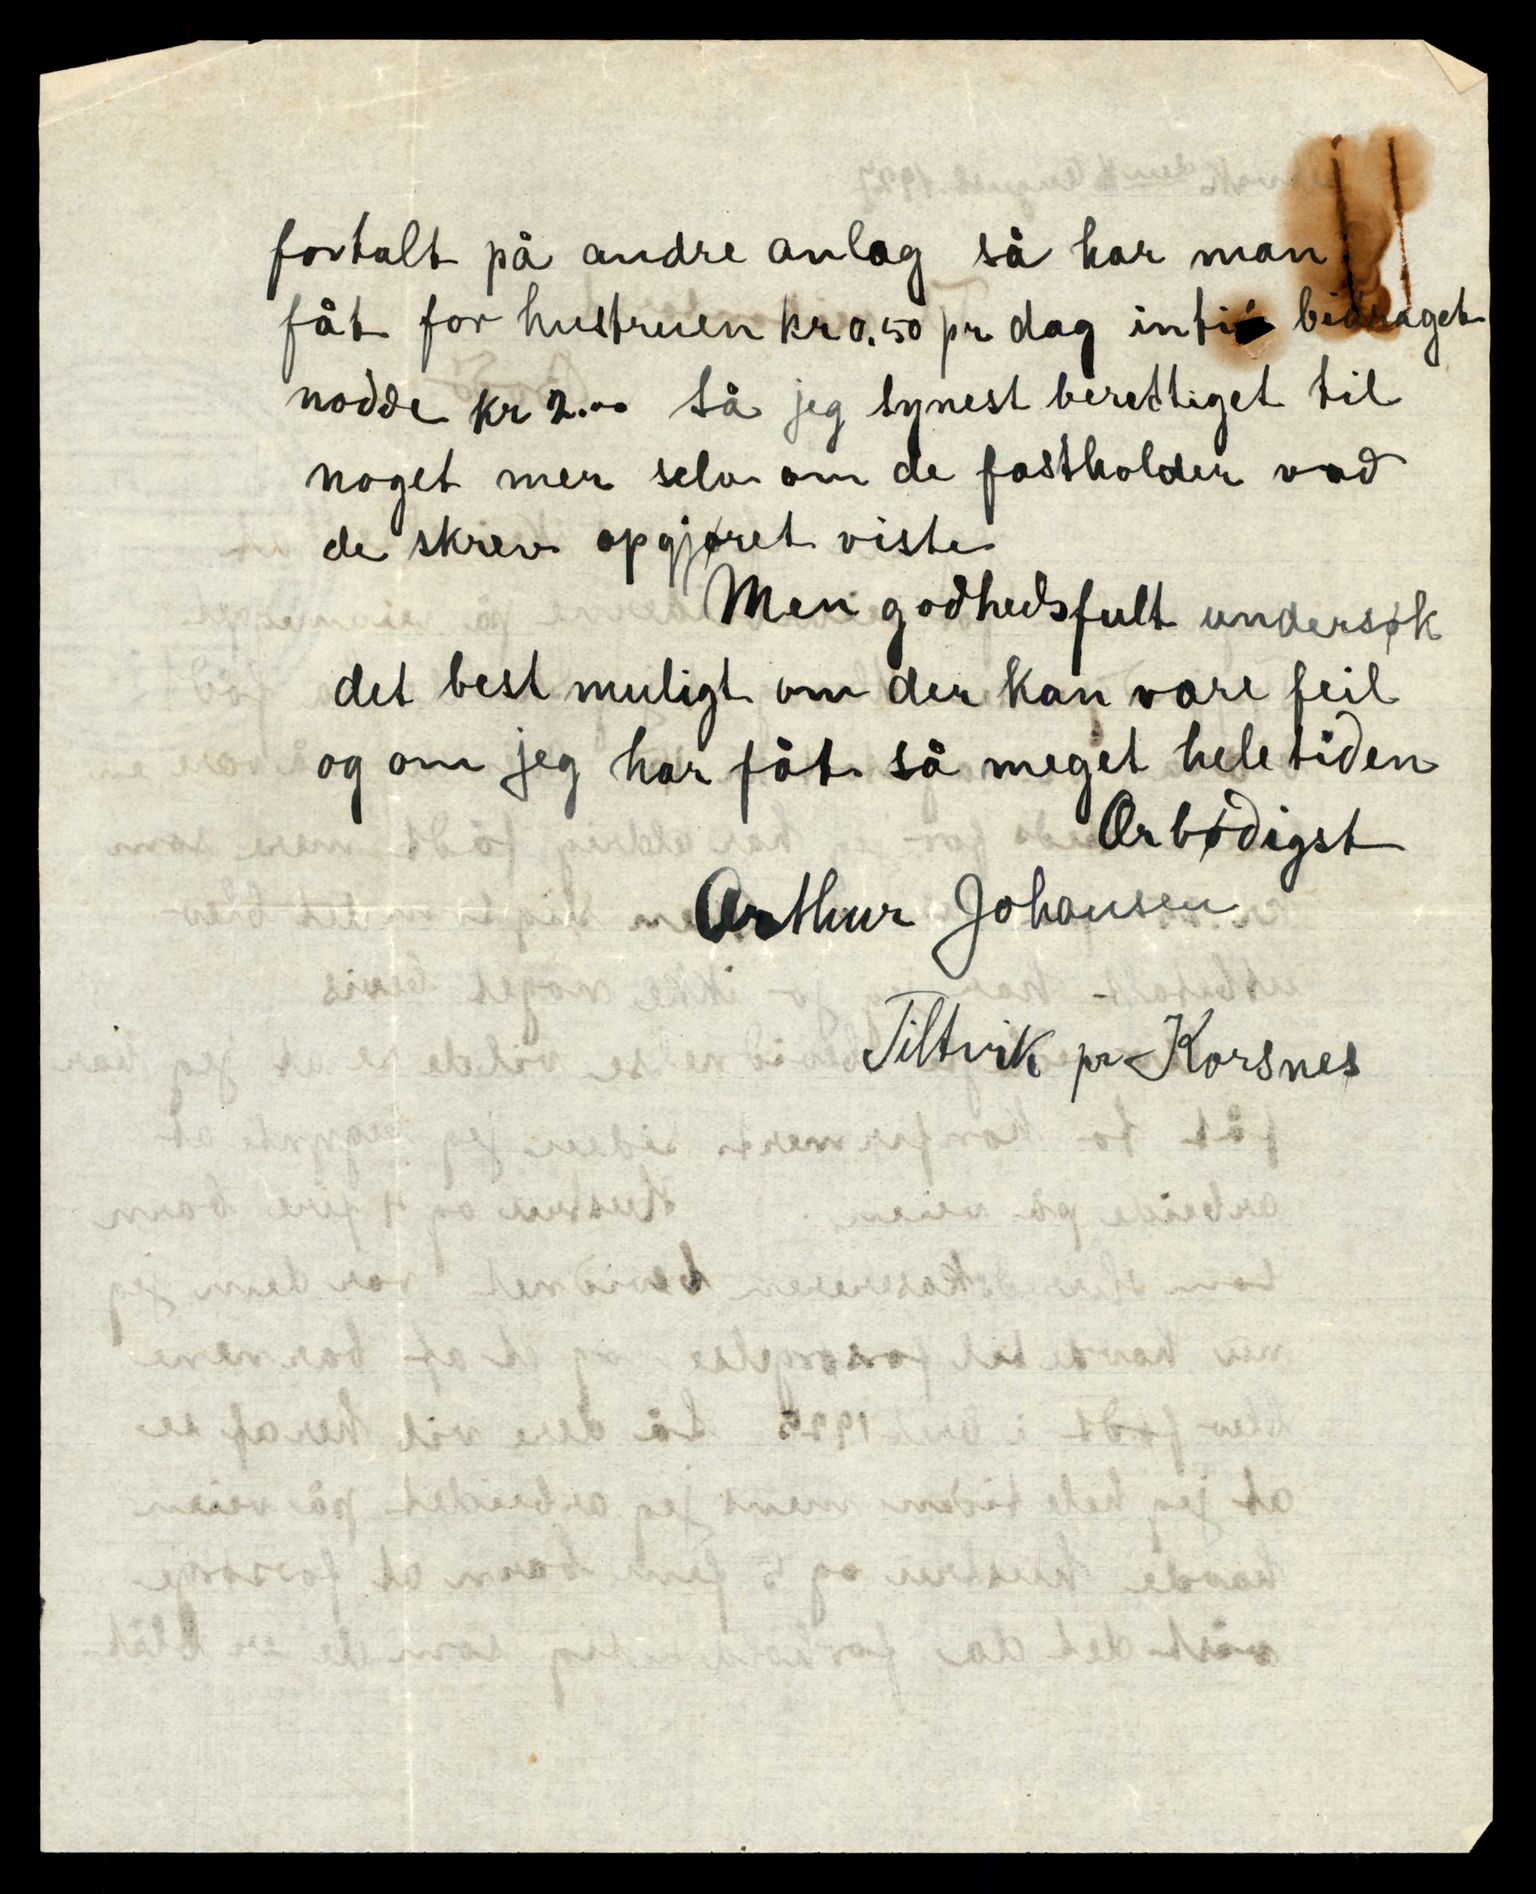 fortalt på andre anlæg så har man
fåt for hustruen kr 0.50 pr dag intil bidraget
nodde kr 2.00 så jeg synest berettiget til
noget mer selv om de fastholder vad
de skrev opgjøret viste
Men godhedsfult undersøk
det best muligt om der kan være feil
og om jeg har fåt så meget hele tiden
Ærbødigst
Arthur Johansen
Tiltvik pr Korsnes